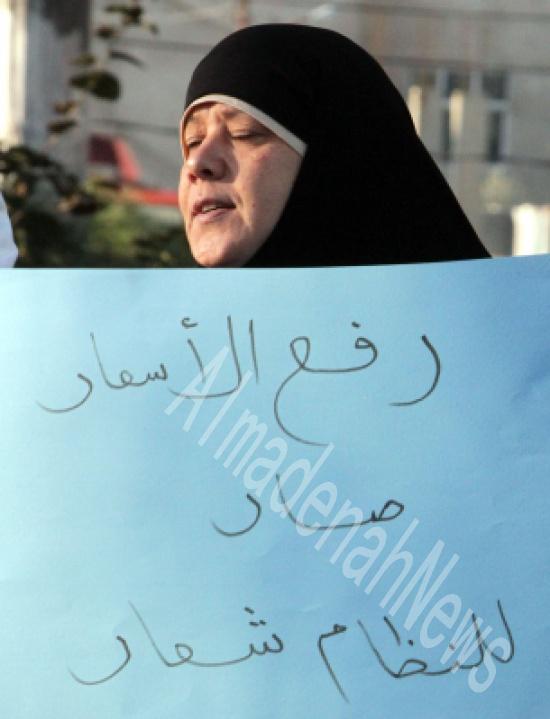 رفع الأسعار
صار
للنظام شعار
AlmadenahNews